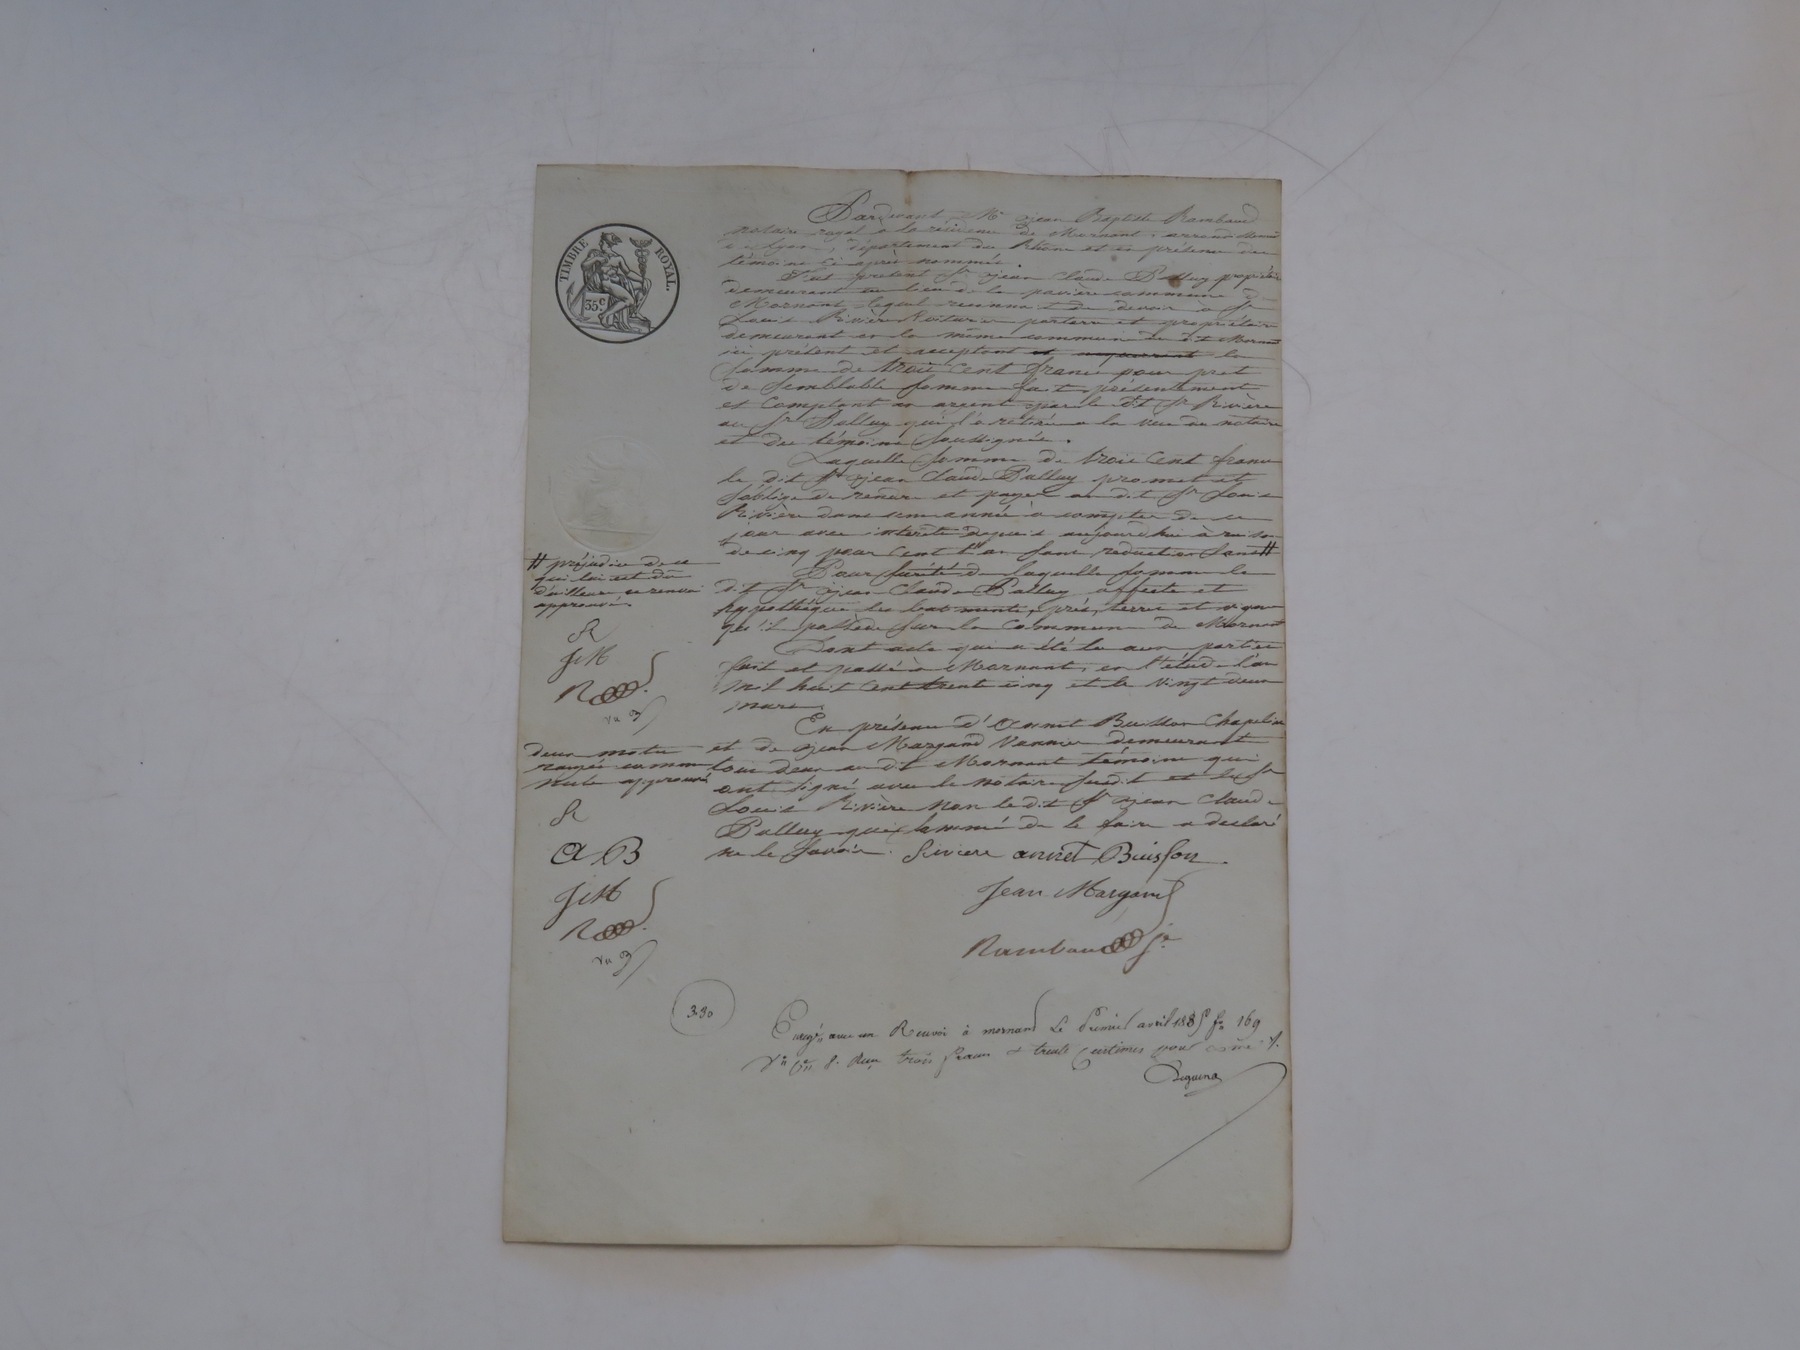 TIMBRE ROYAL.
35 c.
Pardevant Me jean Baptiste Rambaud
notaire royal a la résidence de Mornant, arrondissement
de Lyon, département du Rhône et en présence des
témoins ci après nommés.
Fut présent Sr jean Claude Palluy propriétaire
demeurant au lieu de la pavière commune de
Mornant, lequel reconnait de devoir à Sr
Louis Rivière Voiturier par terre et propriétaire
demeurant en la même commune de dit Mornant
ici présent et acceptant et requerrent la
somme de trois cent francs pour pret
de Semblable somme fait présentement
et Comptant en argent par le dit Sr Rivière
au Sr Palluy qui l'a retirée a la vue du notaire
et des témoins soussignés.
Laquelle somme de trois Cent francs
le dit Sr jean Claude Palluy promet et
s'oblige de rendre et payer au dit Sr Louis
Rivière dans une année à compter de ce
jour avec intérêts depuis aujourdhui à raison
de cinq pour cent l'an sans réduction sans #
# préjudice de ce
qui lui est dû
d'ailleurs ce renvoi
approuvé.
R
J M
R
Pour sureté de laquelle somme le
dit Sr jean Claude Palluy affecte et
hypothèque les batiments, prés, terres et vignes
qu'il possède sur la Commune de Mornant
Dont acte qui a été lu aux parties
fait et passé à Mornant, en l'étude l'an
mil huit cent trente cinq et le vingt deux
mars
En présence d'Annet Buisson Chapelier
et de jean Margand Vannier demeurant
tous deux au dit Mornant témoins qui
ont signé avec le notaire susdit et le Sr
Louis Rivière Non le dit Sr jean Claude
Palluy qui sommé de le faire a declaré
ne le Savoir.
deux mots
rayés comme
nuls approuvé
R
A B
J M
R
Riviere annet Buisson
Jean Margand
Rambaud Jn
3-30
Enregé avec un Renvoi à mornant Le premier avril 1835 fo 169
Vo Ce 8. Reçu trois francs et trente Centimes pour